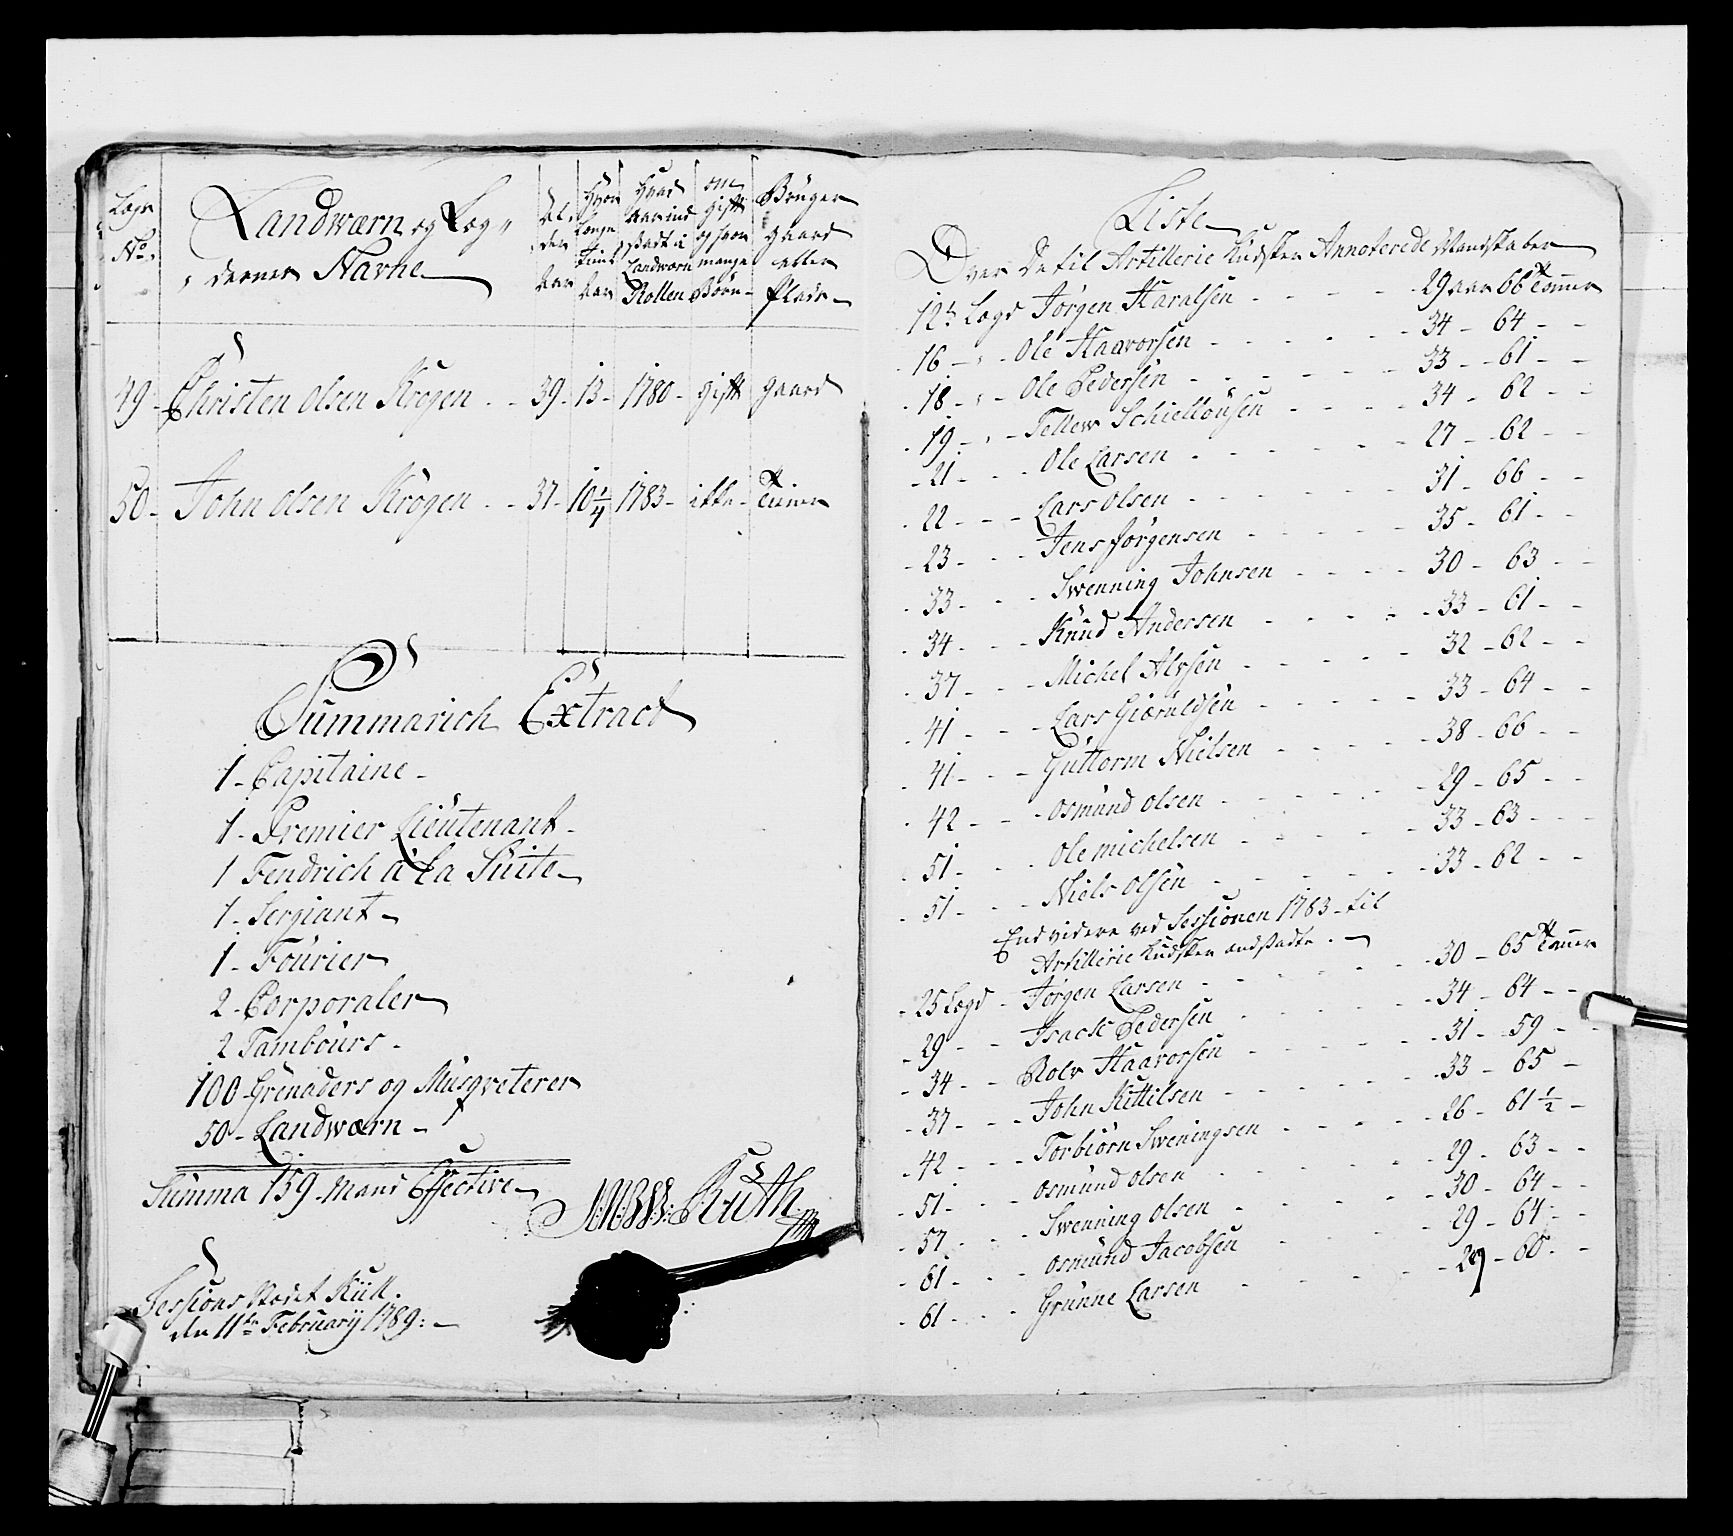 Lægs No.
Landwærn og Læg,,
derner Navne
Al,
der
Aar
Hvor
Længe
tient
Aar
Hvad
Aar ind
Landværn
Rollen
om
gift
og hvor
mange
Børn
Bruger
gaard
eller
Plads
49 - Christen Olsen Krogen - - 39 - 13 - 1780 - gift gaard
50 - John Olsen Krogen - - 37 - 10 1/4 1783 - ikke - tiener
Summarich Extract
1 - Capitaine -
1 - Premier Lieutenant -
1 Fendrich a la Suite
1 - Sergiant -
1 - Fourier
2 - Corporaler
2 Tambours -
100 Grenaders og Musqveterer
50 - Landwærn -
Summa 159 Mand Effective
Ruth
Sessions Stædet
den 11te February 1789: -
Liste
Over De til Artillerie Kudsker Annoterede Mandskaber
12te Lægd Jørgen Haralsen - - - - 29 aar 66 Tommer
16 - - Ole Haavorsen - - - - 34 - 64 - -
18 - - Ole Pedersen - - - - 33 - 61 - -
19 - - Tellew Schiellousen - - - - 34 - 62 - -
21 - - Ole Larsen - - - - 27 - 62 - -
22 - - - Lars Olsen - - - - 31 - 66 - -
23 - - - Jens Jørgensen - - - - 35 - 61 - -
33 - - - Swenning Johnsen - - - - 30 - 63 - -
34 - - - Knud Andersen - - - - 33 - 61 - -
37 - - - Michel Alvsen - - - - 32 - 62 - -
41 - - - Lars Giæruldsen - - - - 33 - 64 - -
41 - - - Guttorm Nielsen - - - - 38 - 66 - -
42 - - - Osmund Olsen - - - - 29 - 65 - -
51 - - - Ole Michelsen - - - - 33 - 63 - - -
51 - - - Niels Olsen - - - - 33 - 62 - -
End videre ved Sessionen 1783 - til
Artillerie Kudsker andsadte. -
25 Lægd - Jørgen Larsen - - - - 30 - 65 Tommer
29 - - - Isack Pedersen - - - - 34 - 64 - -
34 - - Rolv Haavorsen - - - - 31 - 59 - -
37 - - - John Kittilsen - - - - 33 - 65 -
42 - - - Torbiørn Sweningsen - - - - 26 - 61 1/2 -
51 - - - Osmund Olsen - - - - 29 - 63 - -
57 - - - Swenning Olsen - - - - 30 - 64 - -
61 - - - Osmund Jacobsen - - - - 29 - 64 - -
61 - - - Grunne Larsen - - - - 29 - 60 - -